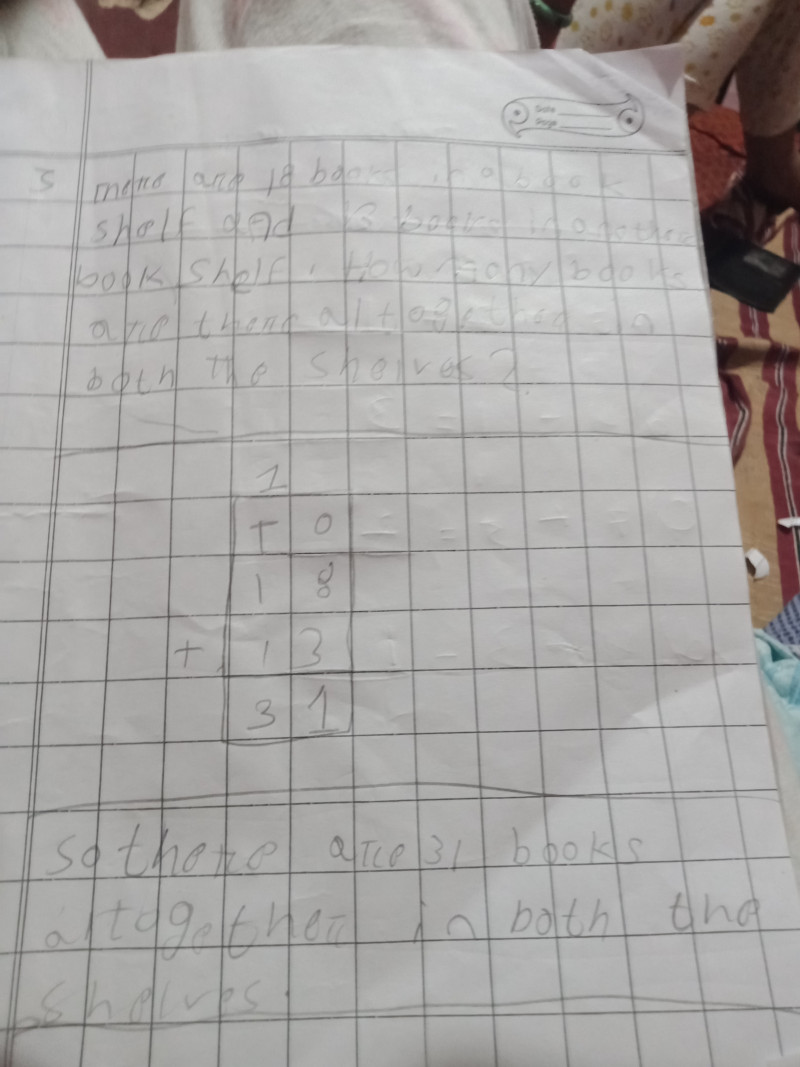 Date
Page
5 there are 18 books in a book
shelf and 13 books in another
book shelf. How many books
are there altogether in
both the shelves?
1
T O
1 8
+ 1 3
3 1
so there are 31 books
altogether in both the
shelves.